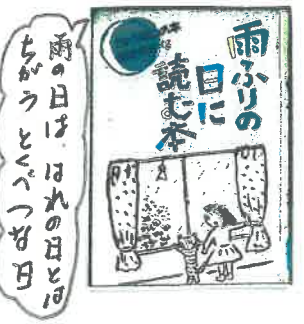 雨ふりの
日に
読む本
雨の日は はれの日とは
ちがう とくべつな日